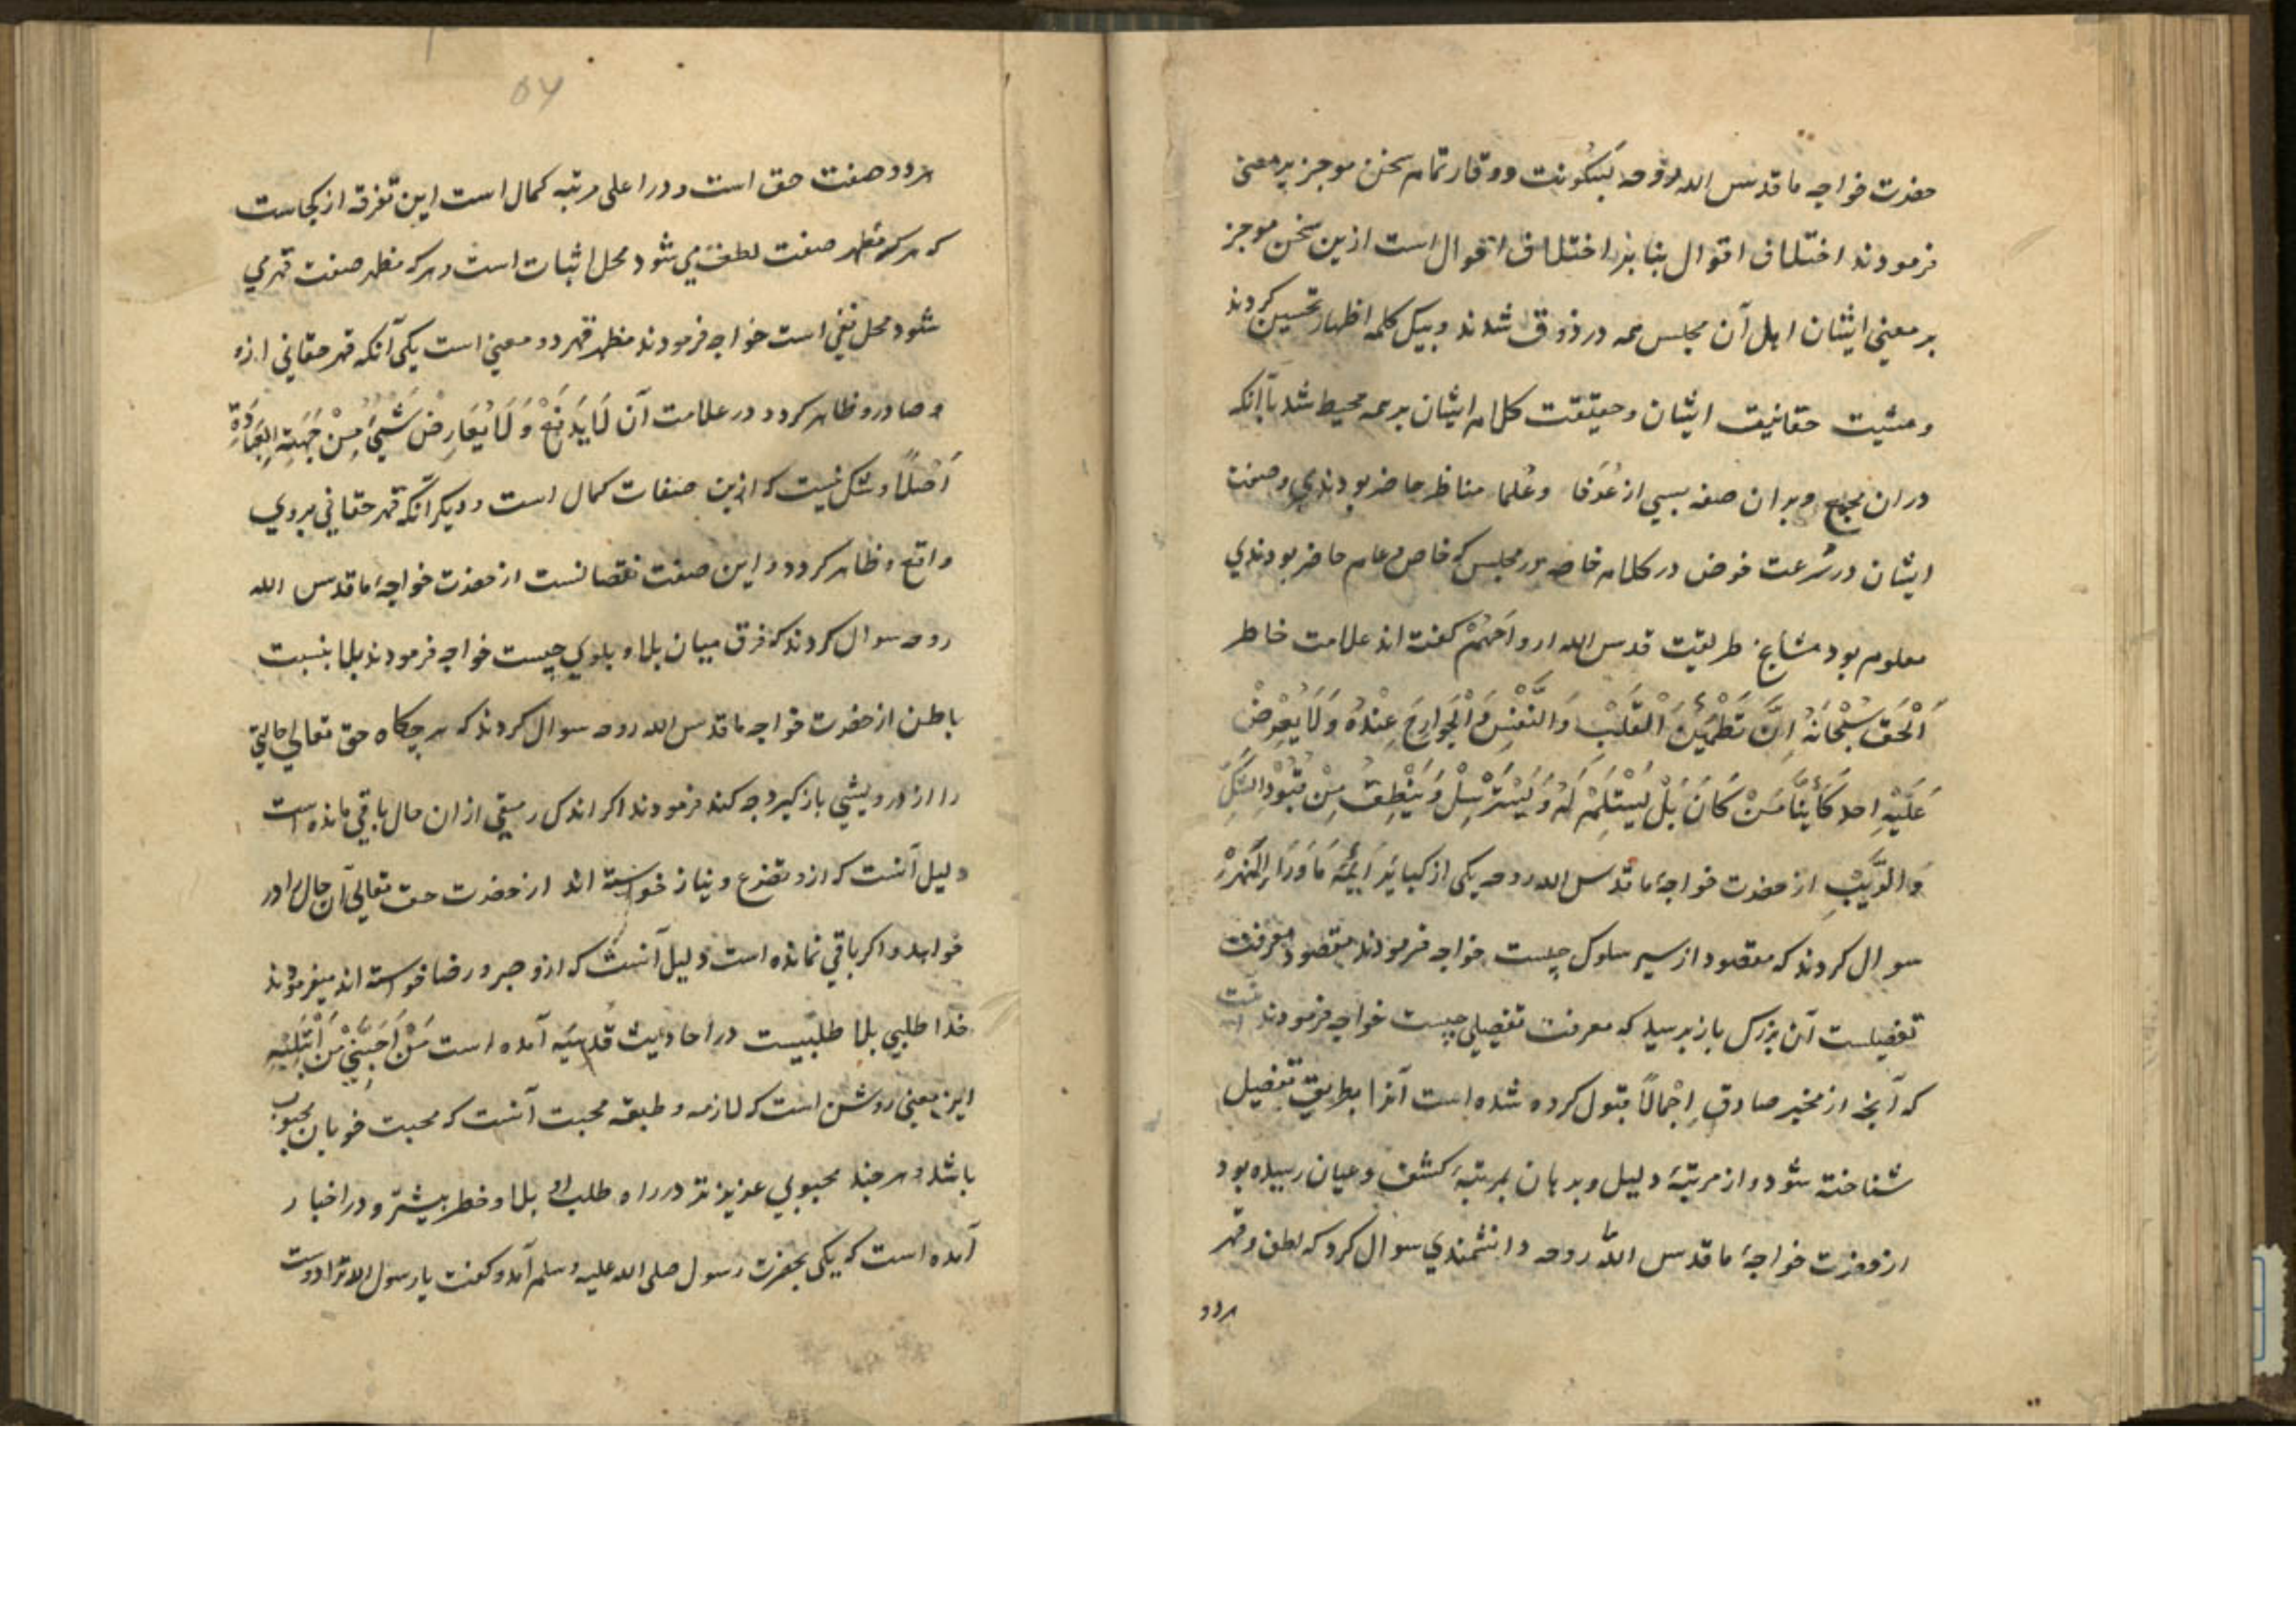 حضرت خواجه ما قدس الله روحه بسکونت و وقار تمام سخن موجز پر معنی
فرمودند اختلاف اقوال بنا بر اختلاف احوال است ازین سخن موجز
پر معنی ایشان اهل آن مجلس همه در ذوق شدند و بیک کلمه اظهار تحسین کردند
و حقانیت ایشان و حقیقت کلام ایشان بر همه محیط شد با آنکه
در ان مجمع و بر ان صفه بسی از عُرَفا وعُلما مناظر حاضر بودندی و صفت
ایشان در سُرعت خوض در کلام خاصه در مجلس که خاص و عام حاضر بودندی
معلوم بود مشایخ طریقت قدس الله ارواحَهُمْ کفته اند علامت خاطر
اَلْحَق سُبْحَانَهُ اِنَّ تَطْمَئِنَّ الْقَلْبُ وَالنَّفْسُ وَالْجَوارِحَ عِنْدَهُ وَلَا يَعْرِضُ
عَلَيْهِ احد كَأَيْنًا مَنْ كَانَ بَلْ يَسْتَلِمُ لَهُ وَ يَسْتَرْسِلْ وَ يَنْطِقُ مِنْ قُيُودِ الشَّكِّ
وَالرَّيْبِ از حضرت خواجهٔ ما قدس الله روحه یکی از کبایَر اَئِمَّهٔ مَاوَرَاءِ النَّهَرْ
سوال کردند که مقصود از سیر سلوک چیست خواجه فرمودند مقصود معرفت
تفضیلست آن بزرک باز پرسید که معرفت تفضیلی چیست خواجه فرمودند
که آنچه از مخبر صادق اِجْمالاً قبول کرده شده است آنرا بطریق تفضیل
شناخته شود و از مرتبهٔ دلیل و برهان بمرتبهٔ کشف و عیان رسیده بود
از حضرت خواجهٔ ما قدس اللّٰه روحه دانشمندی سوال کرد که لطف و قهر
هر دو
هر دو صفت حق است و در اعلی مرتبه کمال است این تفرقه از کجاست
که هر که مظهر صفت لطف می شود محل اثبات است و هر که مظهر صفت قهر می
شود محل نفی است خواجه فرمودند مظهر قهر دو معنی است یکی آنکه قهر حقانی ازو
صادر و ظاهر کردد و در علامت آن لَا يَدْفَعُ وَلَا يُعَارِضُ شَيْءٌ مِنْ جِهَتِهِ
اَصْلاً و شک نیست که ازین صفات کمال است و دیکر آنکه قهر حقانی بروی
واقع و ظاهر کردد و این صفت نقصانست از حضرت خواجهٔ ما قدس الله
روحه سوال کردند که فرق میان بلا و بلوی چیست خواجه فرمودند بلا بنسبت
باطن از حضرت خواجه ما قدس الله روحه سوال کردند که هر چکاه حق تعالی حالتی
را از درویشی باز کیرد چه کند فرمودند اکر اندک رمقی ازان حال باقی مانده است
دلیل آنست که ازو تضرع و نیاز خواسته اند از حضرت حق تعالی آن حال را در
خواهد و اکر باقی نمانده است دلیل آنست که ازو صبر و رضا خواسته اند میفرمودند
خدا طلبی بلا طلبیست در احادیث قُدسیَه آمده است مَنْ اَحَبَّنِي مَنْ اَبْتَلَيْتِهِ
این معنی روشن است که لازمه و طبقه محبت آنست که محبت خوبان محبوب
باشد و هر چند محبوبی عزیز تر در راه طلب او بلا و خطر بیشتر و در اخبار
آمده است که یکی بحضرت رسول صلی الله علیه وسلم آمد و کفت یا رسول الله ترا دوست